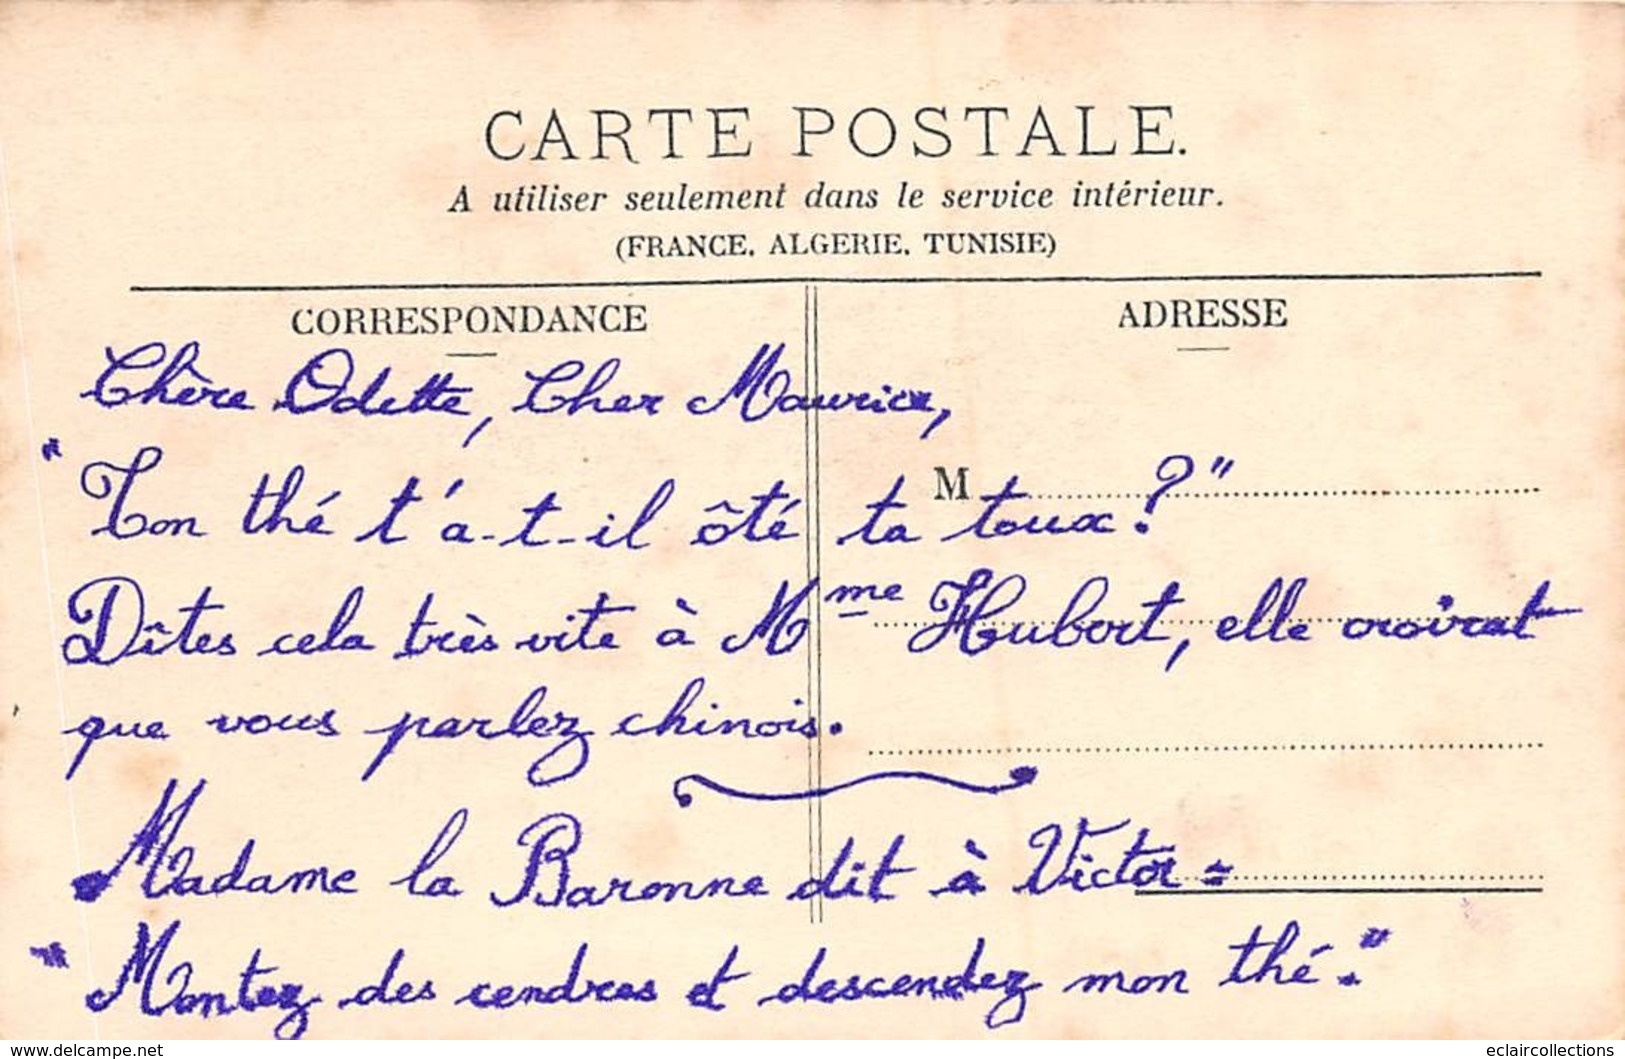 CARTE POSTALE.
A utiliser seulement dans le service intérieur.
(FRANCE. ALGERIE. TUNISIE)
CORRESPONDANCE
ADRESSE
Chère Odette, Cher Maurice,
M
"Ton thé t'a-t-il ôté ta toux?"
Dîtes cela très vite à Mme Hubert, elle croirat
que vous parlez chinois.
Madame la Baronne dit à Victor =
"Montez des cendres et descendez mon thé."
www.delcampe.net
eclaircollections